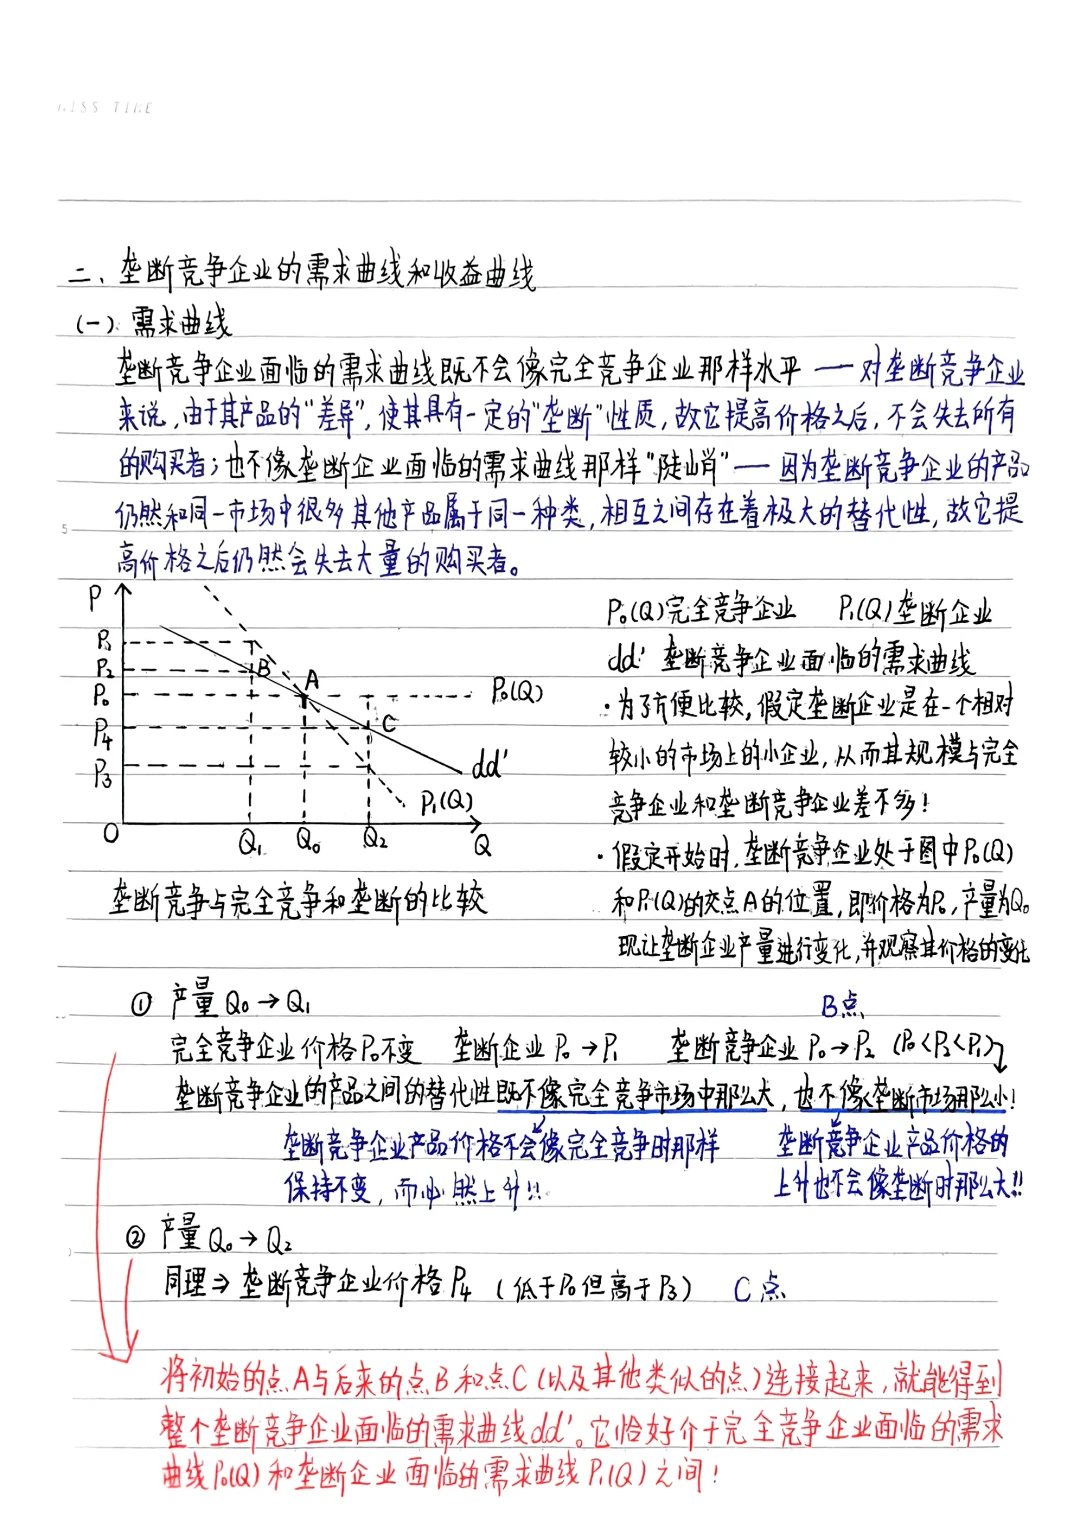 KISS TIME
二、垄断竞争企业的需求曲线和收益曲线
(一) 需求曲线
垄断竞争企业面临的需求曲线既不会像完全竞争企业那样水平 — 对垄断竞争企业
来说,由于其产品的“差异”,使其具有一定的“垄断”性质,故它提高价格之后,不会失去所有
的购买者;也不像垄断企业面临的需求曲线那样“陡峭”— 因为垄断竞争企业的产品
5
仍然和同一市场中很多其他产品属于同一种类,相互之间存在着极大的替代性,故它提
高价格之后仍然会失去大量的购买者。
P
P₁
P₂
P₀
P₄
P₃
B
A
C
P₀(Q)
dd'
P₁(Q)
O
Q₁
Q₀
Q₂
Q
垄断竞争与完全竞争和垄断的比较
P₀(Q)完全竞争企业 P₁(Q)垄断企业
dd' 垄断竞争企业面临的需求曲线
·为了方便比较,假定垄断企业是在一个相对
较小的市场上的小企业,从而其规模与完全
竞争企业和垄断竞争企业差不多!
·假定开始时,垄断竞争企业处于图中P₀(Q)
和P₁(Q)的交点A的位置,即价格为P₀,产量为Q₀
现让垄断企业产量进行变化,并观察其价格的变化
① 产量Q₀→Q₁
B点
完全竞争企业价格P₀不变 垄断企业 P₀→P₁ 垄断竞争企业 P₀→P₂ (P₀<P₂<P₁)
垄断竞争企业的产品之间的替代性既不像完全竞争市场中那么大,也不像垄断市场那么小!
垄断竞争企业产品价格不会像完全竞争时那样 垄断竞争企业产品价格的
保持不变,而必然上升!! 上升也不会像垄断时那么大!!
② 产量Q₀→Q₂
同理⇒垄断竞争企业价格P₄ (低于P₀但高于P₃) C点
将初始的点A与后来的点B和点C(以及其他类似的点)连接起来,就能得到
整个垄断竞争企业面临的需求曲线dd'。它恰好介于完全竞争企业面临的需求
曲线P₀(Q)和垄断企业面临的需求曲线P₁(Q)之间!